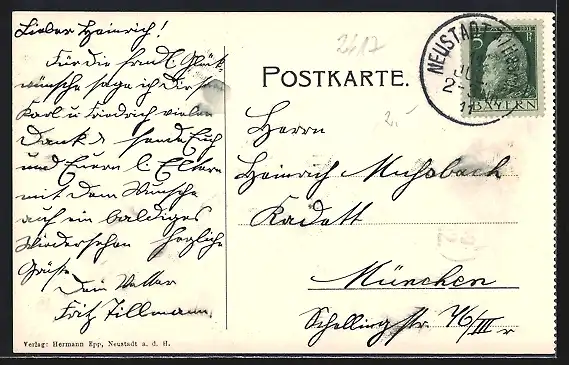 Lieber Heinrich!
Für die frndl. Glück-
wünsche sage ich Dir sowie
Karl u Friedrich vielen
Dank, sende Euch
und Euern l. Eltern
mit dem Wunsche
auf ein baldiges
Wiedersehen herzliche
Grüße
Dein Vetter
Fritz Tillmann
Verlag: Hermann Epp, Neustadt a. d. H.
2617
POSTKARTE.
2.-
NEUSTADT
5
BAYERN
Herrn
Heinrich Muhsbach
Kadett
München
Schellingstr. 76/III r